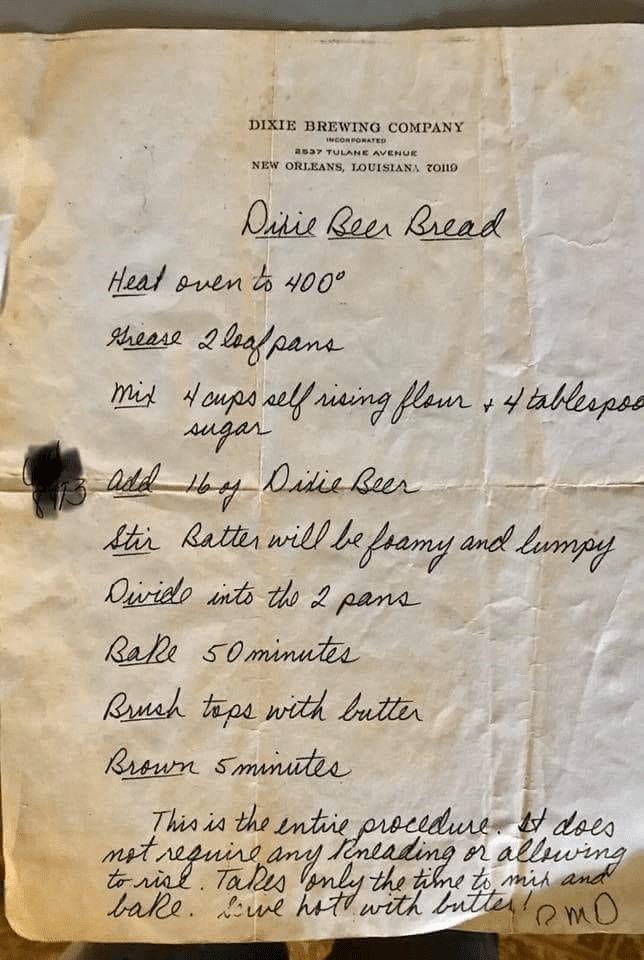 DIXIE BREWING COMPANY
INCORPORATED
2537 TULANE AVENUE
NEW ORLEANS, LOUISIANA 70119
Dixie Beer Bread
Heat oven to 400°
Grease 2 loaf pans
Mix 4 cups self rising flour + 4 tablespoo
sugar
Add 16 oz Dixie Beer
Stir Batter will be foamy and lumpy
Divide into the 2 pans
Bake 50 minutes
Brush tops with butter
Brown 5 minutes
This is the entire procedure. It does
not require any kneading or allowing
to rise. Takes only the time to mix and
bake. Serve hot with butter! RMO